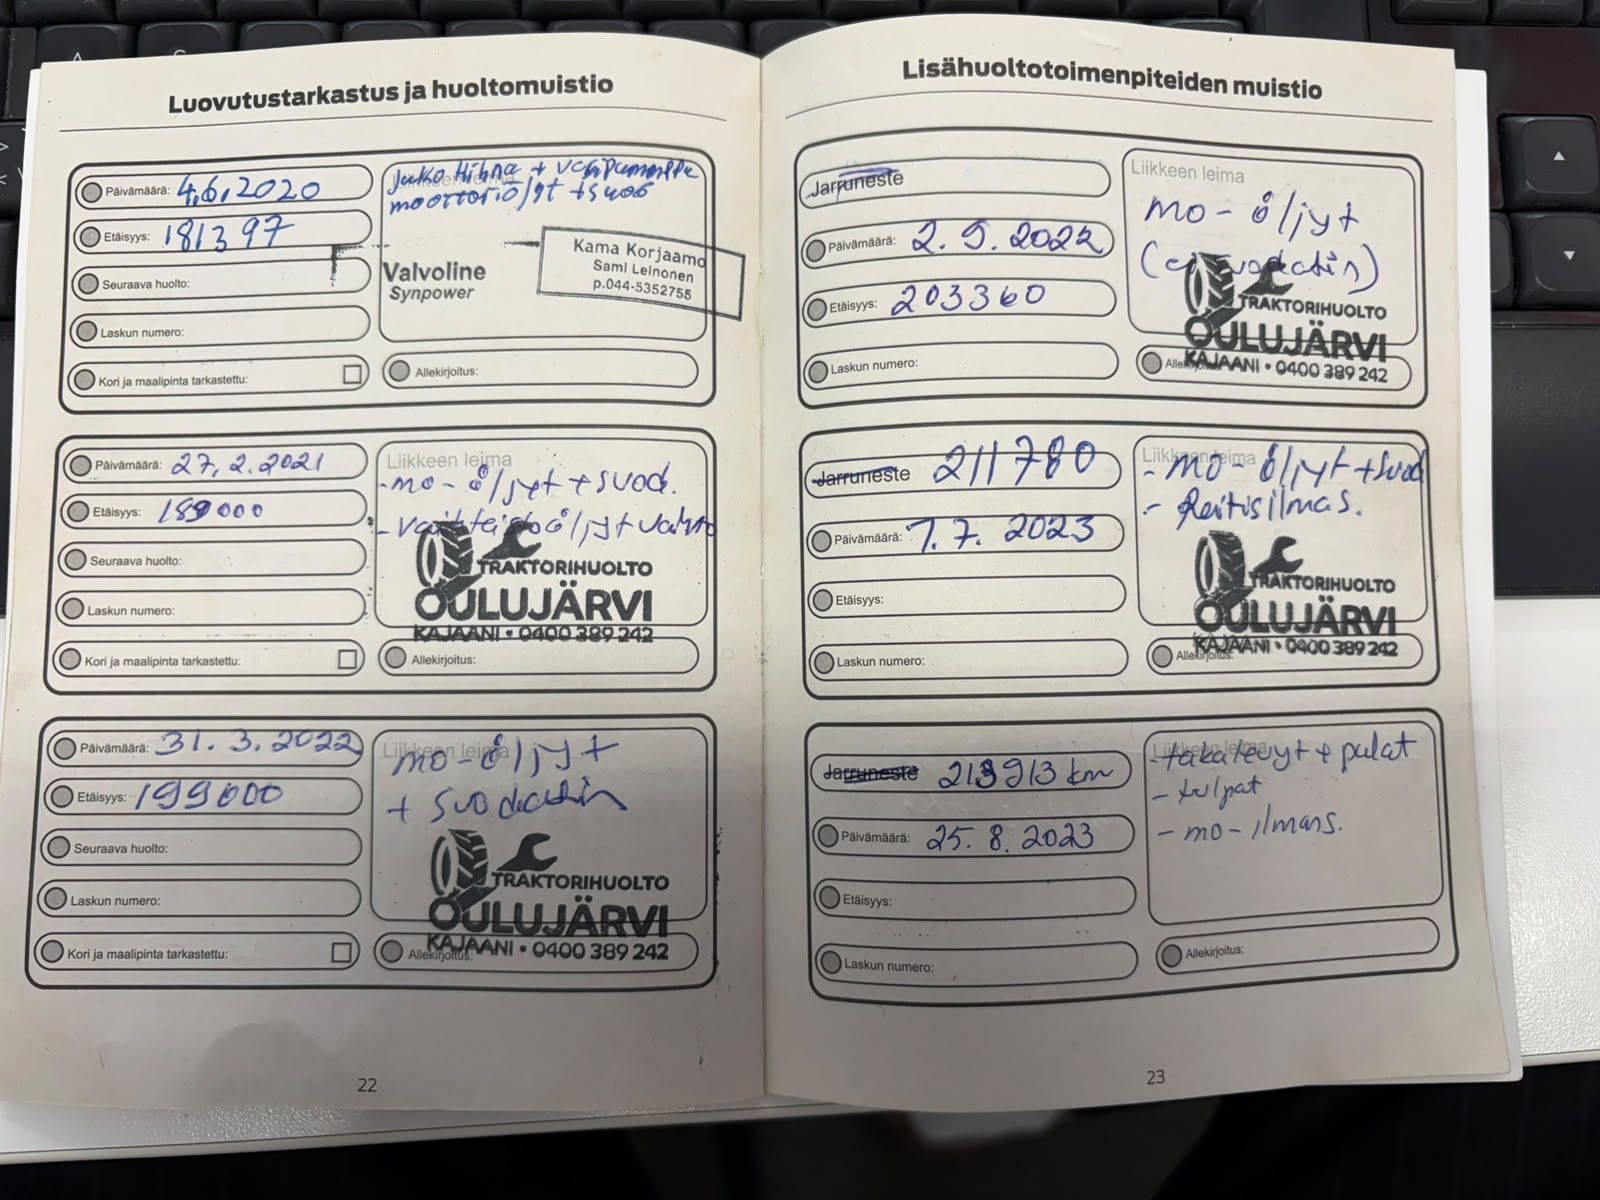 Luovutustarkastus ja huoltomuistio
Päivämäärä: 4.6.2020
Etäisyys: 181397
Seuraava huolto:
Laskun numero:
Kori ja maalipinta tarkastettu:
Jako Hihna +
moottoriöljyt + suod
Valvoline
Synpower
Kama Korjaamo
Sami Leinonen
p.044-5352755
Allekirjoitus:
Päivämäärä: 27.2.2021
Etäisyys: 189000
Seuraava huolto:
Laskun numero:
Kori ja maalipinta tarkastettu:
Liikkeen leima
- mo-öljyt + suod.
- vaihteistoöljyt vaihto
TRAKTORIHUOLTO
OULUJÄRVI
KAJAANI • 0400 389 242
Allekirjoitus:
Päivämäärä: 31.3.2022
Etäisyys: 199000
Seuraava huolto:
Laskun numero:
Kori ja maalipinta tarkastettu:
Liikkeen leima
mo-öljyt
+ suodatin
TRAKTORIHUOLTO
OULUJÄRVI
KAJAANI • 0400 389 242
Allekirjoitus:
22
Lisähuoltotoimenpiteiden muistio
Jarruneste
Päivämäärä: 2.9.2022
Etäisyys: 203360
Laskun numero:
Liikkeen leima
mo-öljyt
(ei suodatin)
TRAKTORIHUOLTO
OULUJÄRVI
KAJAANI • 0400 389 242
Jarruneste 211780
Päivämäärä: 1.7.2023
Etäisyys:
Laskun numero:
Liikkeen leima
- mo-öljyt + suod
- Raitisilmas.
TRAKTORIHUOLTO
OULUJÄRVI
KAJAANI • 0400 389 242
Allekirjoitus:
Jarruneste 213913 km
Päivämäärä: 25.8.2023
Etäisyys:
Laskun numero:
Liikkeen leima
- takalevyt + palat
- tulpat
- mo-ilmans.
Allekirjoitus:
23